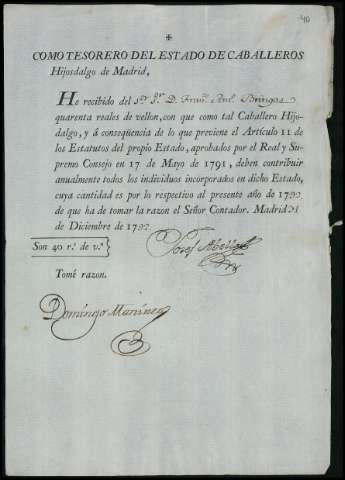 40
✠
COMO TESORERO DEL ESTADO DE CABALLEROS
Hijosdalgo de Madrid,
He recibido del Sor Dr. D. Franco. Anto. Bringas
quarenta reales de vellon, con que como tal Caballero Hijo-
dalgo, y á conseqüencia de lo que previene el Artículo 11 de
los Estatutos del propio Estado, aprobados por el Real y Su-
premo Consejo en 17 de Mayo de 1791, deben contribuir
anualmente todos los individuos incorporados en dicho Estado,
cuya cantidad es por lo respectivo al presente año de 1792,
de que ha de tomar la razon el Señor Contador. Madrid 31
de Diciembre de 1792.
Son 40 r.s de v.n
Josef
Tomé razon.
Domingo Martinez